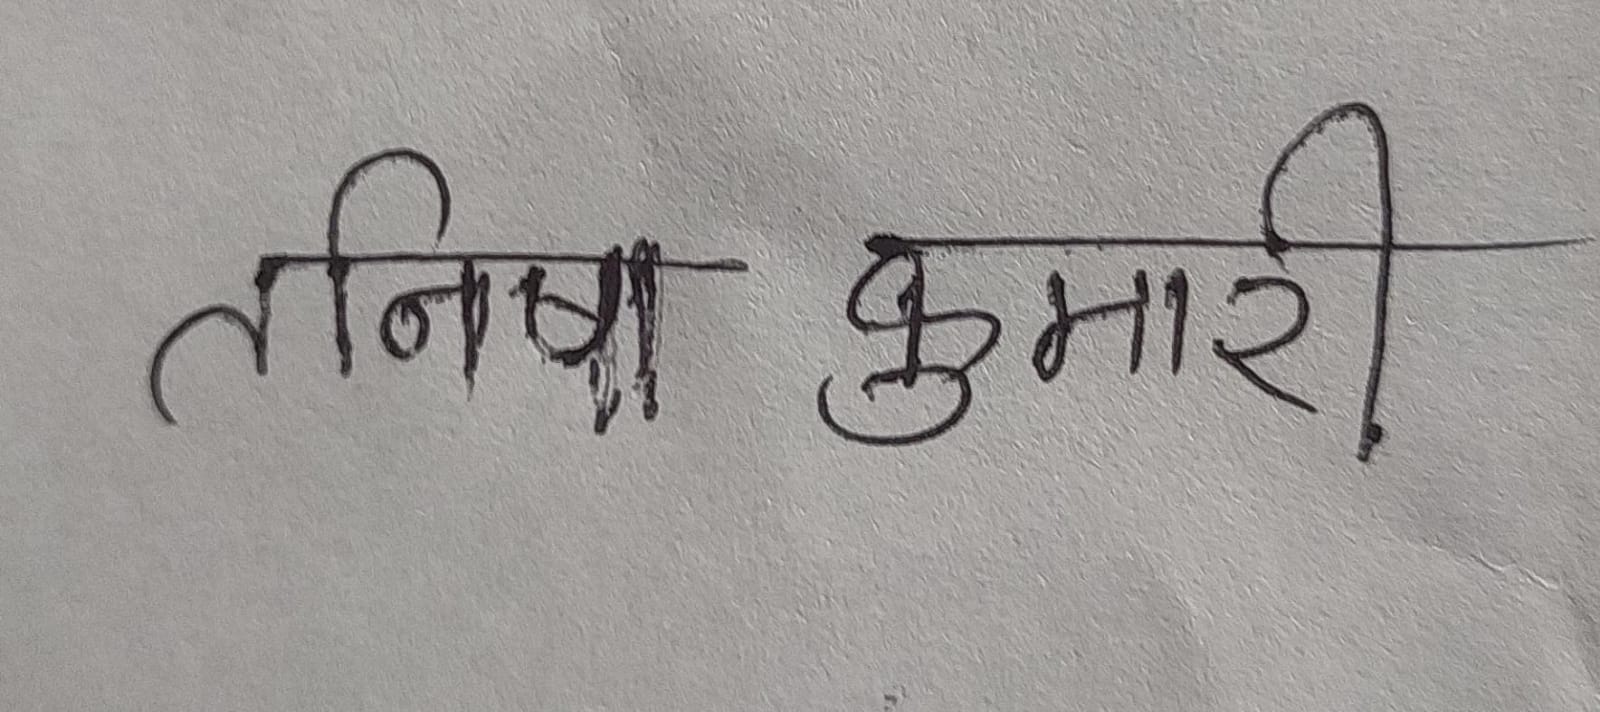 तनिषा कुमारी